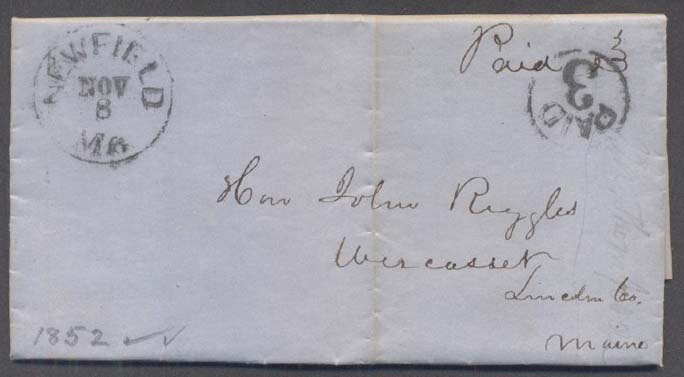 NEWFIELD
NOV
8
Me
Paid 3
PAID
3
Hon John Ruggles
Wiscasset
Lincoln Co.
Maine
1852